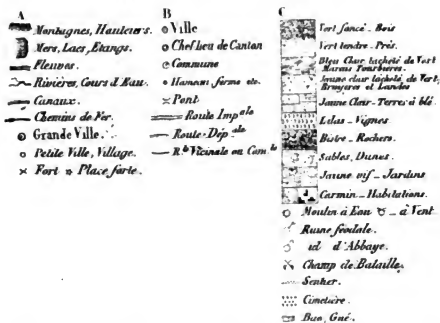 A
Montagnes, Hauteurs.
Mers, Lacs, Etangs.
Fleuves.
Rivières, Cours d'Eau.
Canaux.
Chemins de Fer.
Grande Ville.
Petite Ville, Village.
Fort Place forte.
B
Ville
Chef lieu de Canton
Commune
Hameau, ferme etc.
Pont
Route Imp ale
Route Dép ale
R te Vicinale ou Com le
C
Vert foncé _ Bois
Vert tendre _ Prés.
Bleu Clair tacheté de Vert
Marais Tourbières
Jaune clair tacheté de Vert,
Bruyères et Landes
Jaune Clair _ Terres à blé
Lilas _ Vignes
Bistre _ Rochers.
Sables, Dunes.
Jaune vif _ Jardins
Carmin _ Habitations.
Moulin à Eau _ à Vent
Ruine féodale.
id d'Abbaye.
Champ de Bataille.
Sentier.
Cimetière.
Bac, Gué.